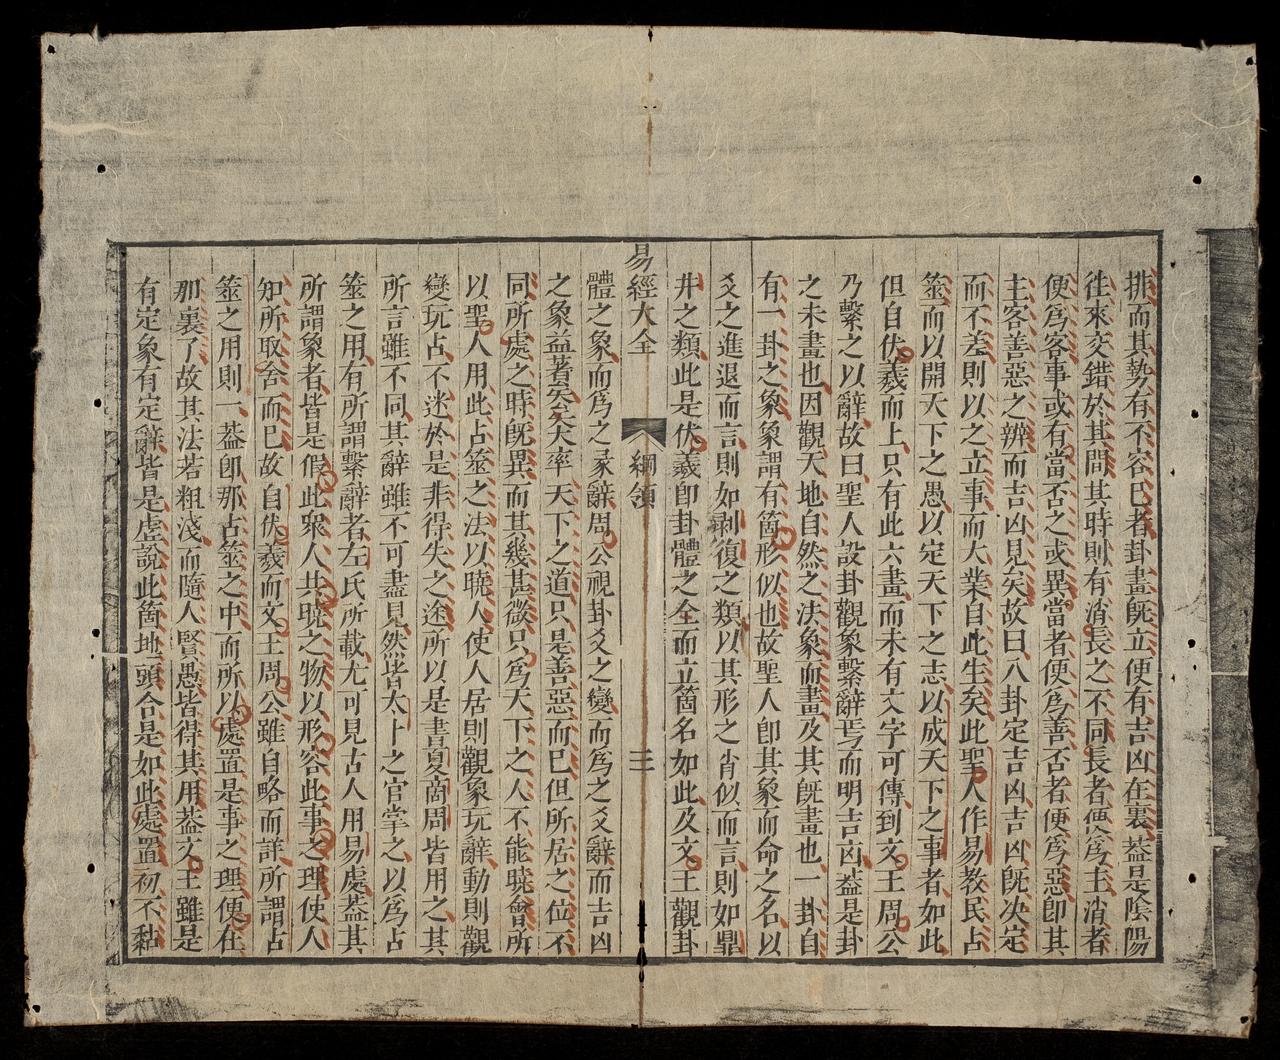 排而其勢有不容已者卦畫旣立便有吉凶在裏葢是陰陽
徃來交錯於其間其時則有消長之不同長者便爲主消者
便爲客事或有當否之或異當者便爲善否者便爲惡卽其
主客善惡之辨而吉凶見矣故曰八卦定吉凶吉凶旣決定
而不差則以之立事而大業自此生矣此聖人作易教民占
筮而以開天下之愚以定天下之志以成天下之事者如此
但自伏羲而上只有此六畫而未有文字可傳到文王周公
乃繫之以辭故曰聖人設卦觀象繫辭焉而明吉凶葢是卦
之未畫也因觀天地自然之法象而畫及其旣畫也一卦自
有一卦之象象謂有箇形似也故聖人卽其象而命之名以
爻之進退而言則如剥復之類以其形之肖似而言則如鼎
井之類此是伏羲卽卦體之全而立箇名如此及文王觀卦
易經大全 綱領 三
體之象而爲之彖辭周公視卦爻之變而爲之爻辭而吉凶
之象益著矣大率天下之道只是善惡而已但所居之位不
同所處之時旣異而其幾甚微只爲天下之人不能曉會所
以聖人用此占筮之法以曉人使人居則觀象玩辭動則觀
變玩占不迷於是非得失之途所以是書夏商周皆用之其
所言雖不同其辭雖不可盡見然皆太卜之官掌之以爲占
筮之用有所謂繫辭者左氏所載尤可見古人用易處葢其
所謂象者皆是假此衆人共曉之物以形容此事之理使人
知所取舍而已故自伏羲而文王周公雖自略而詳所謂占
筮之用則一葢卽那占筮之中而所以處置是事之理便在
那裏了故其法若粗淺而隨人賢愚皆得其用葢文王雖是
有定象有定辭皆是虛說此箇地頭合是如此處置初不黏